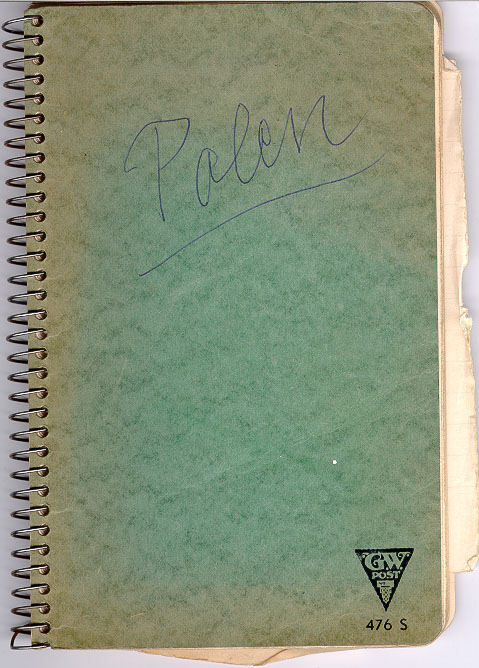 Palen
G.W.
POST
476 S